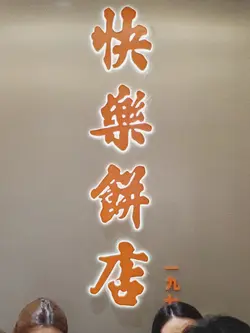 快樂餅店
一九七